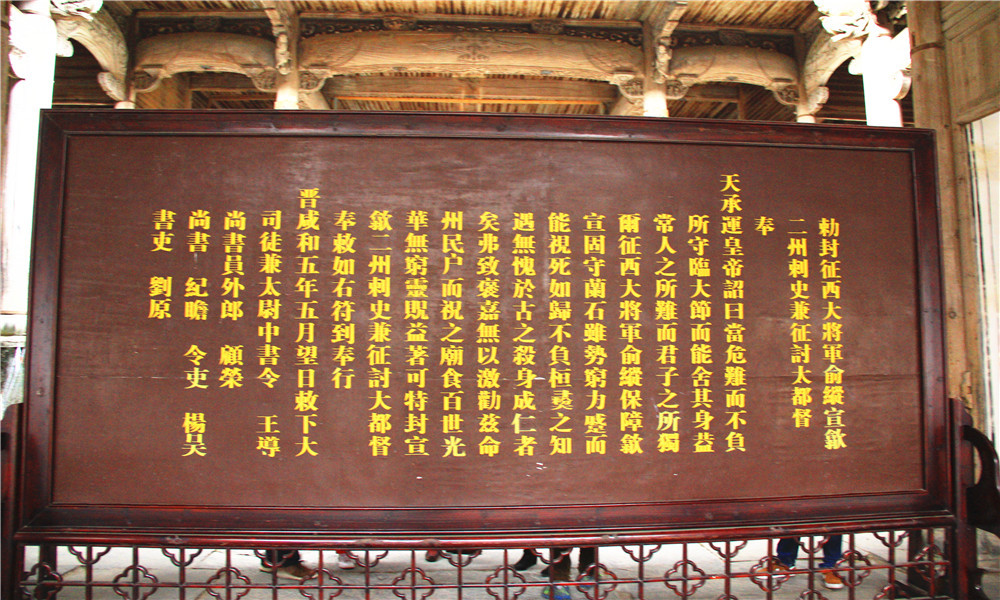 勅封征西大將軍俞縱宣歙
二州刺史兼征討大都督
奉
天承運皇帝詔曰當危難而不負
所守臨大節而能舍其身益
常人之所難而君子之所獨
爾征西大將軍俞縱保障歙
宣固守蘭石雖勢窮力蹙而
能視死如歸不負桓彛之知
遇無愧於古之殺身成仁者
矣弗致褒嘉無以激勸茲命
州民户而祝之廟食百世光
華無窮靈貺益著可特封宣
歙二州刺史兼征討大都督
奉敕如右符到奉行
晋咸和五年五月望日敕下大
司徒兼太尉中書令 王導
尚書員外郎 顧榮
尚書 紀瞻 令吏 楊吴
書吏 劉原